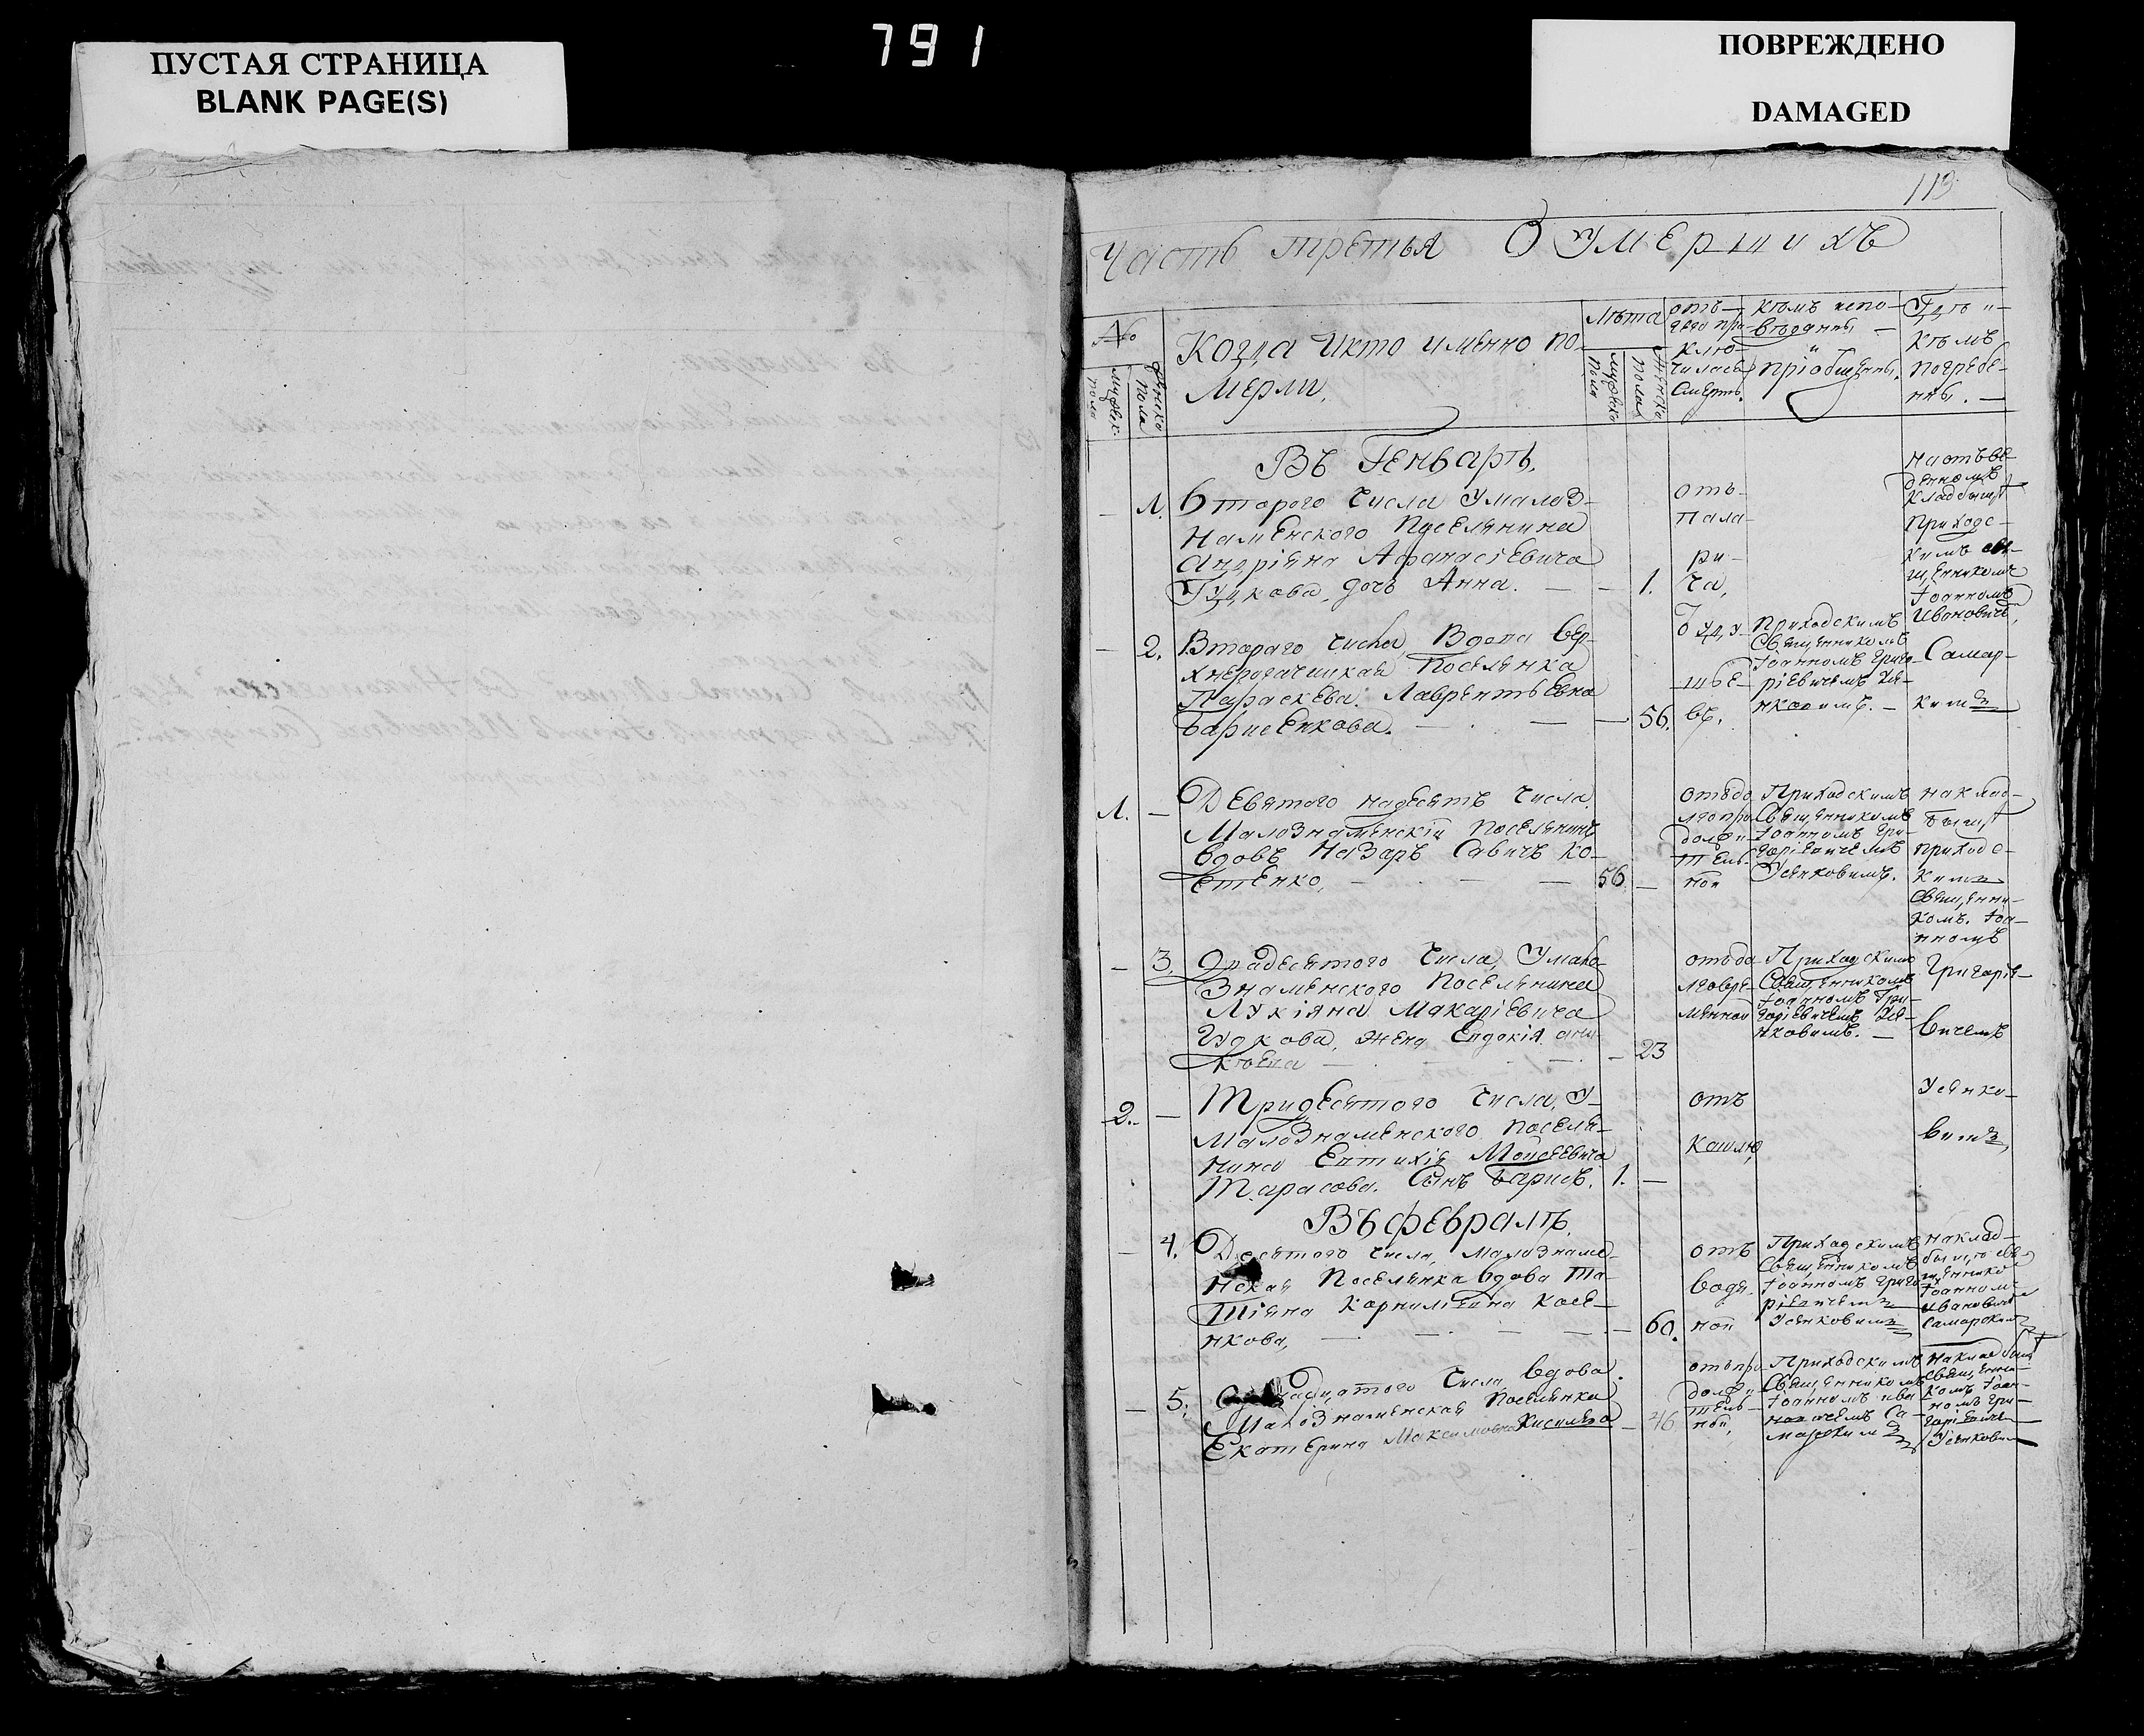 ПУСТАЯ СТРАНИЦА
BLANK PAGE(S)
791
ПОВРЕЖДЕНО
DAMAGED
113
Часть третья О умершихъ
№
мужск. пола
женско пола
Когда и кто именно по-
мерли.
Лѣта
мужско пола
женско пола
отъ
чего при-
клю-
чилась
Смерть.
кѣмъ испо-
вѣданны
и
пріобщенны.
Гдѣ и
кѣмъ
погребе-
нны.
Въ Генварѣ.
1. Второго числа у мало з-
наменского поселянина
Андріяна Афанасіевича
Гудкова, дочь Анна. — — 1.
отъ
пала-
ри-
ча,
на отъве-
денномъ
кладбищѣ
приходс-
кимъ свя-
щенникомъ
Іоанномъ
Ивановиче,
Самар-
кимъ
— 2. Втораго числа, Вдова вер-
хнерогачицкая поселянка
Параскева Лаврентьевна
Барисенкова. — — — 56.
Приходскимъ
Священникомъ
Іоанномъ Григо-
ріевичемъ Уся-
нковимъ. —
1. — Девятого надесять числа
Малознаменскій поселянинъ
вдовъ Назаръ Савичъ Ко-
етенко, — — — 56. —
отъ до
лго про
должи
тель-
ной
Приходскимъ
Священникомъ
Іоанномъ Гри-
горіевичемъ
Усянковимъ.
на клад-
бищѣ
приходс-
кимъ
Священни-
комъ. Іоа-
нномъ
Григоріе-
вичемъ
Усянко-
вимъ,
— 3. Двадесятого числа, У мало
знаменского поселянина
Лукіяна Макаріевича
Гудкова, жена Евдокія
— 23
отъ до
лговре-
менной
Приходскимъ
Священникомъ
Іоанномъ Гри-
горіевичемъ Уся-
нковимъ. —
2. — Тридесятого числа, У
малознаменского поселя-
нина Евтихія Мойсеевича
Тарасова. Сынъ Барисъ. 1. —
отъ
кашлю,
Въ февралѣ.
— 4. Десятого числа, малознаме-
нская поселянка вдова Та-
тіяна Корниліевна Кося-
нкова, — — — — 60.
отъ
водя-
ной
Приходскимъ
Священникомъ
Іоанномъ Григо-
ріевичемъ
Усянковимъ
на клад-
бищѣ свя-
щеннико
Іоанном
Ивановичъ
Самарским
— 5. числа вдова
Малознаменская поселянка
Екатерина Максимовна Кисилева — 46
отъ про
должи
тель-
ной,
Приходскимъ
Священникомъ
Іоанномъ Ива
новичемъ Са-
марскимъ
На кладбищѣ
Священни-
комъ Іоан-
номъ Гри-
горіевичем
Усянковим